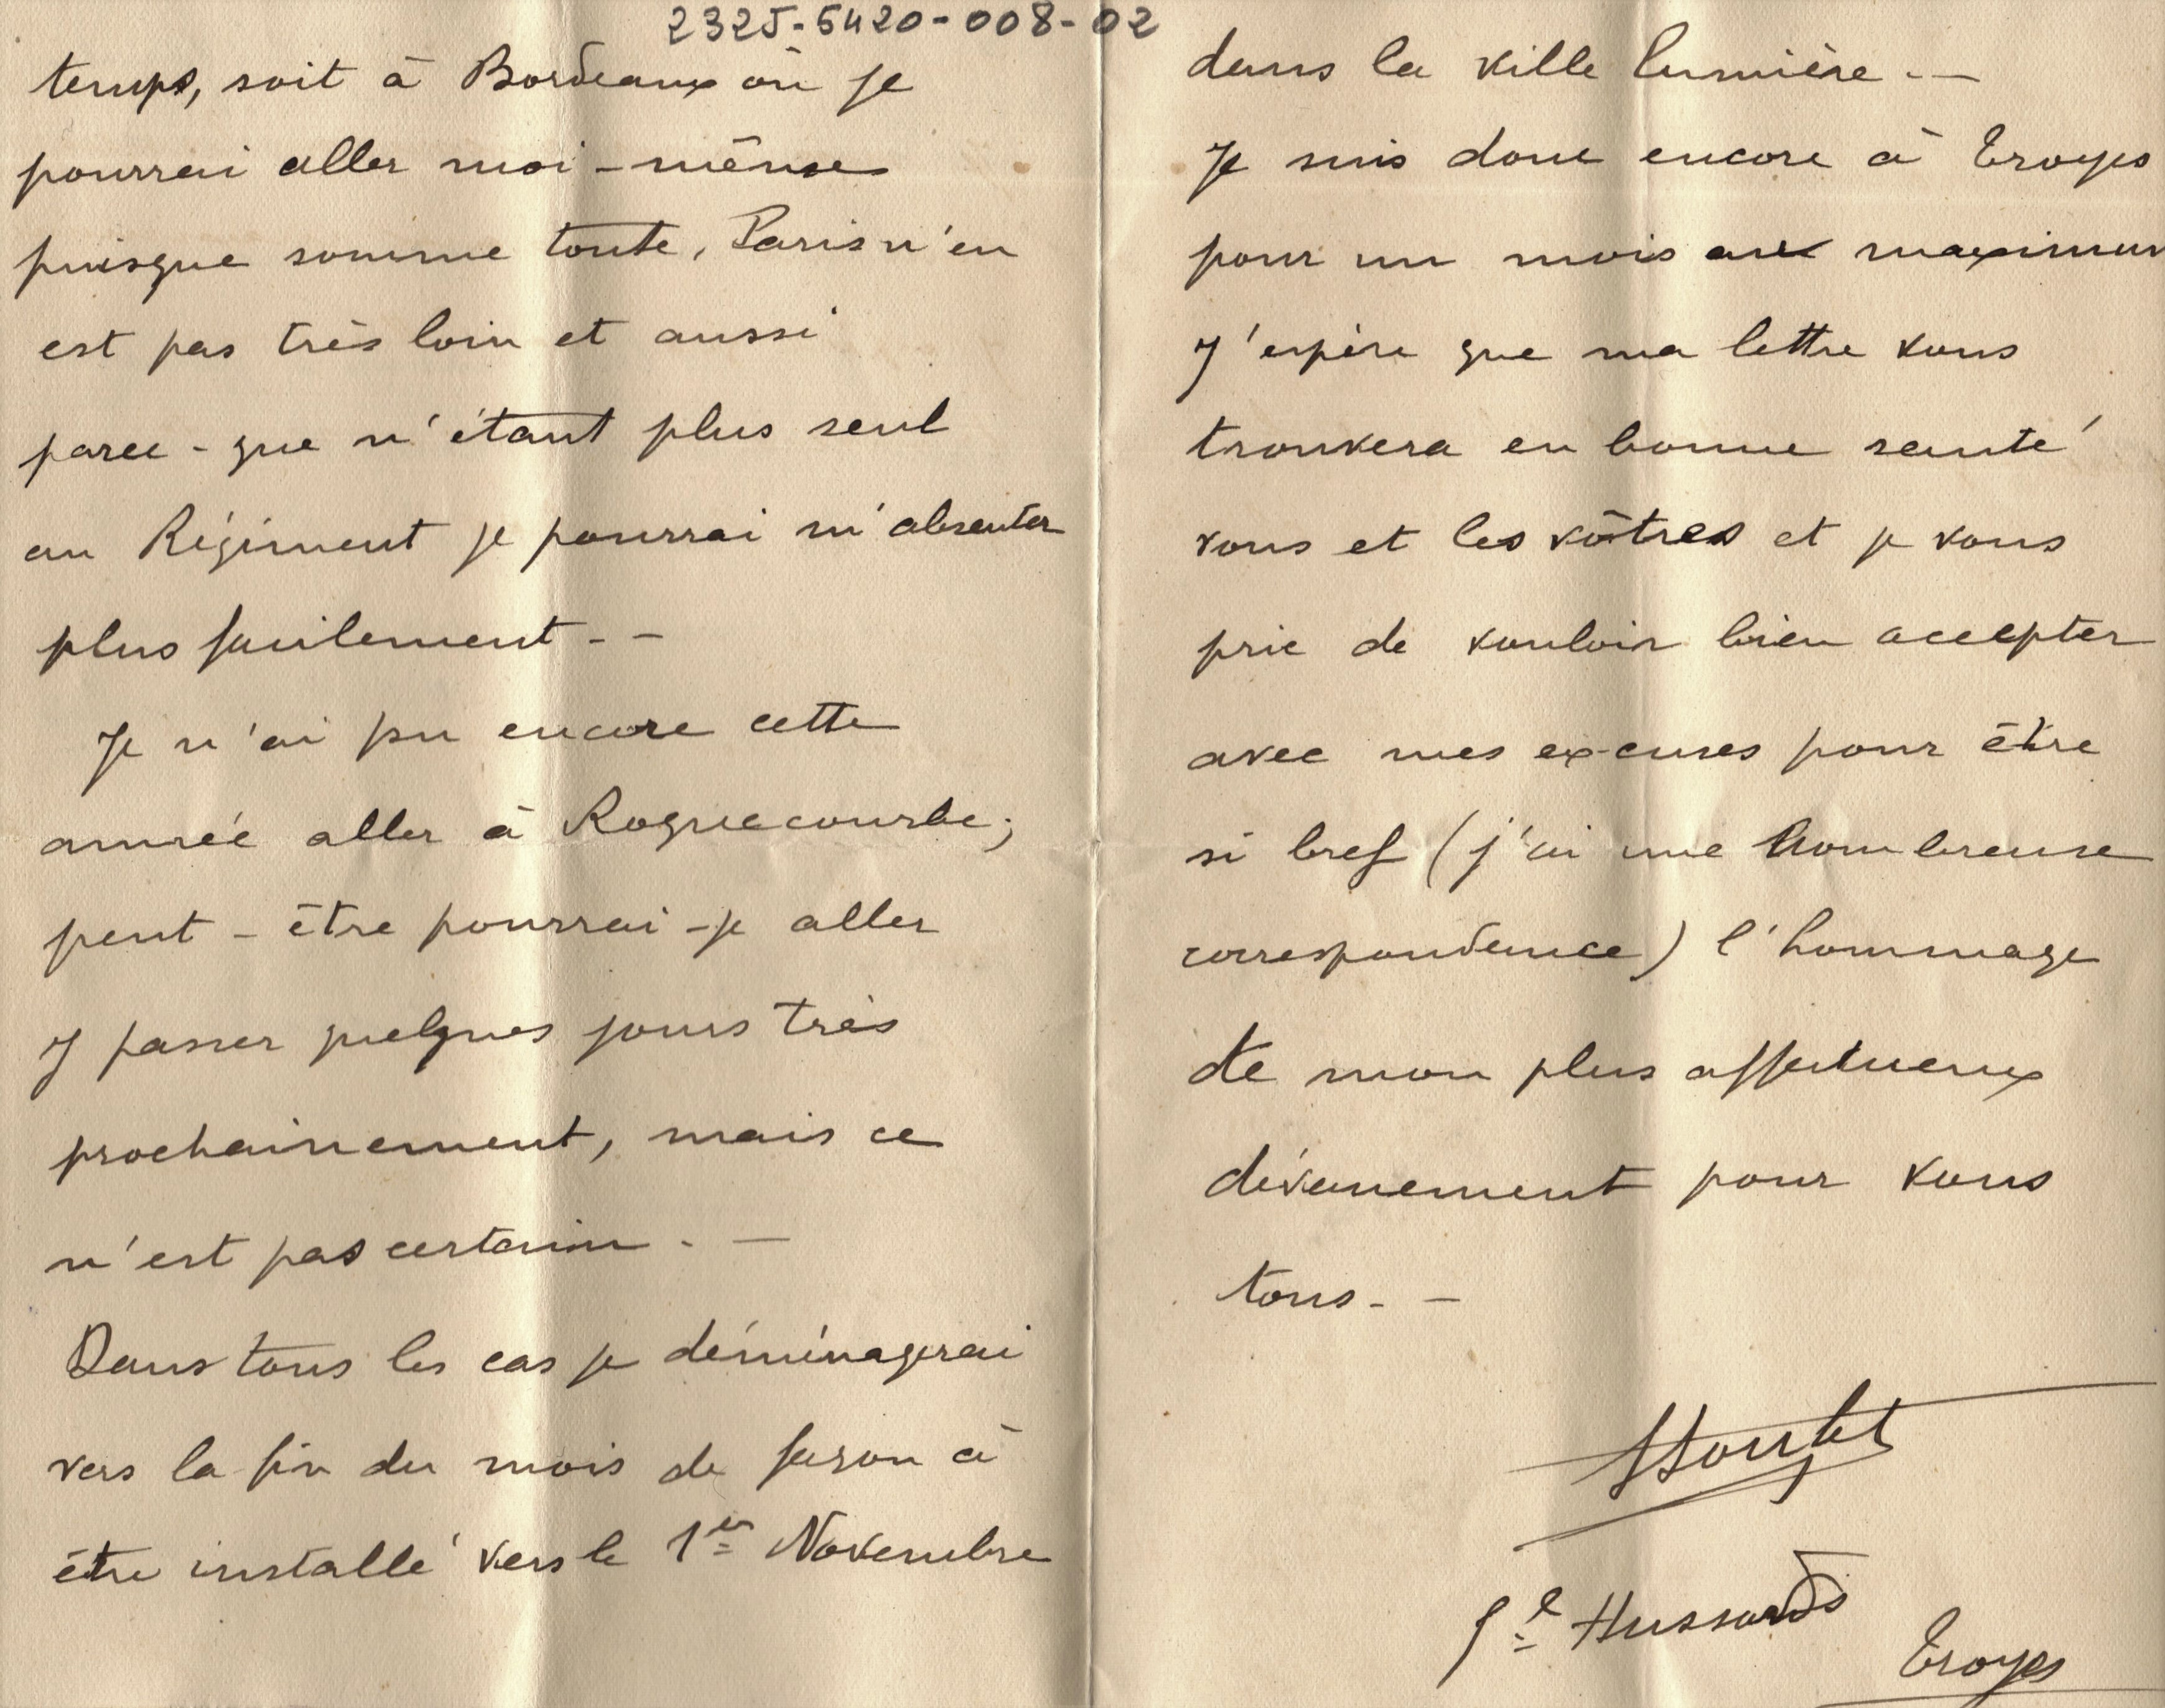 2325-5420-008-02
temps, soit à Bordeaux où je
pourrai aller moi-même
puisque somme toute, Paris n'en
est pas très loin et aussi
parce-que n'étant plus seul
au Régiment je pourrai m'absenter
plus facilement - -
Je n'ai pu encore cette
année aller à Roquecourbe ;
peut-être pourrai-je aller
y passer quelques jours très
prochainement, mais ce
n'est pas certain. -
Dans tous les cas je déménagerai
vers la fin du mois de façon à
être installé vers le 1er Novembre
dans la ville lumière. -
Je suis donc encore à Troyes
pour un mois au maximum
J'espère que ma lettre vous
trouvera en bonne santé
vous et les vôtres et je vous
prie de vouloir bien accepter
avec mes excuses pour être
si bref (j'ai une nombreuse
correspondance) l'hommage
de mon plus affectueux
dévouement pour vous
tous. -
Hussards
Troyes